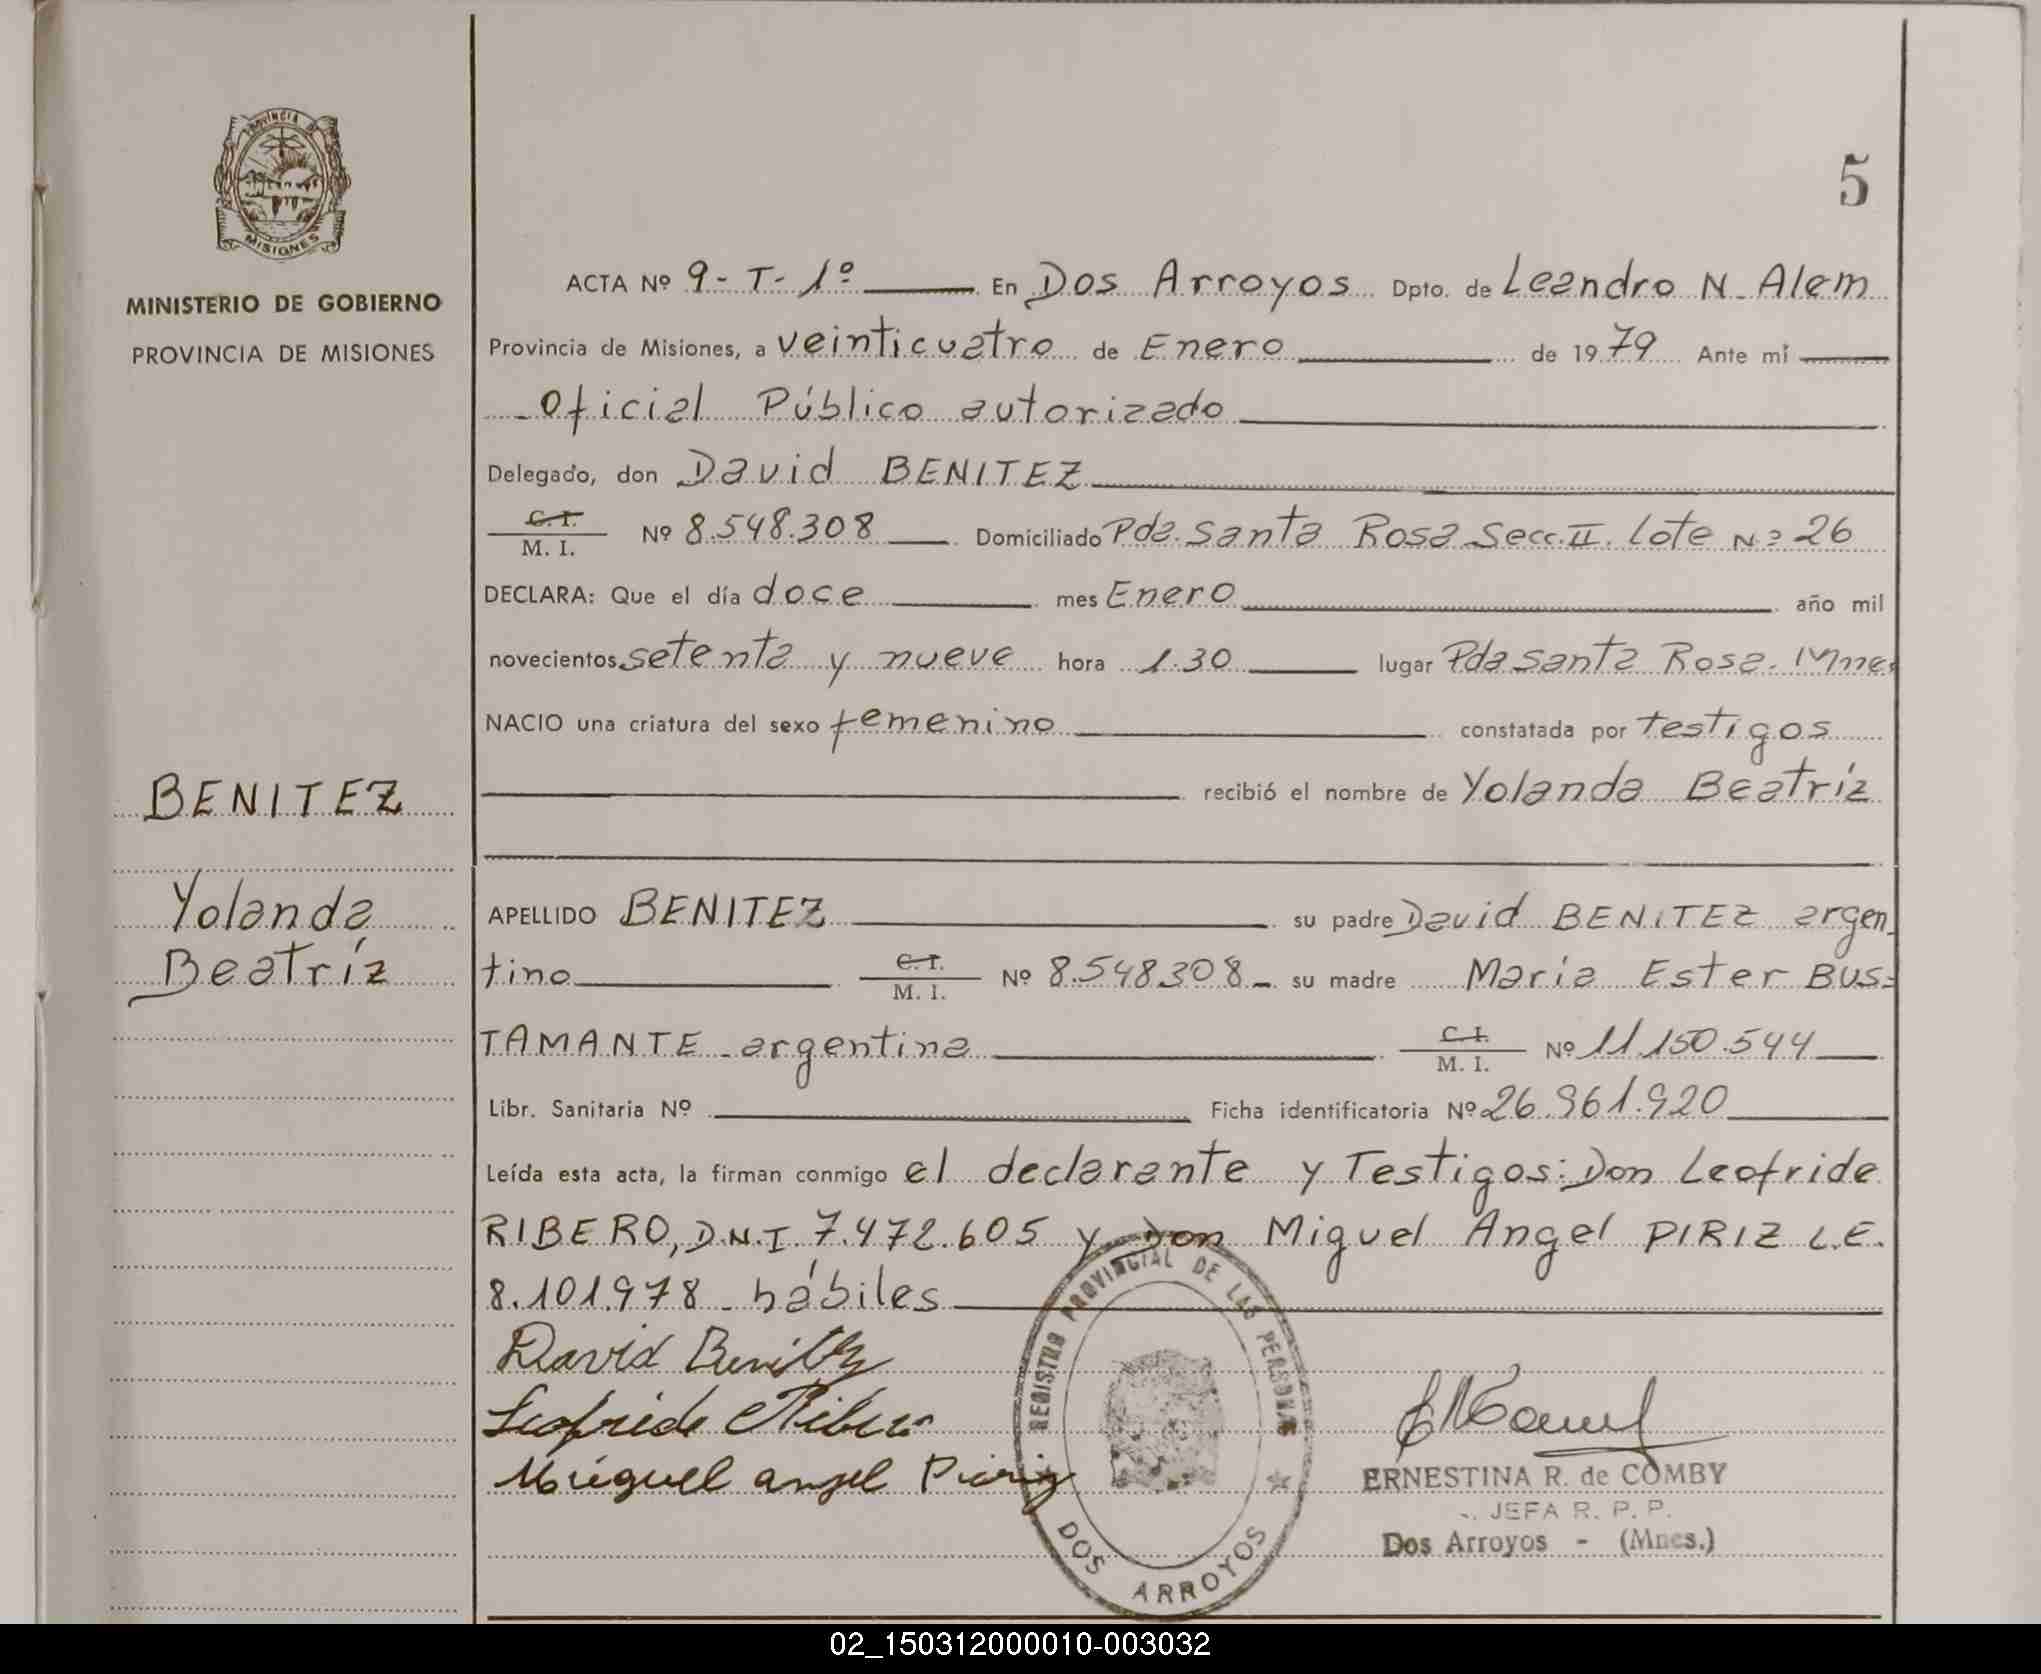 PROVINCIA DE
MISIONES
MINISTERIO DE GOBIERNO
PROVINCIA DE MISIONES
BENITEZ
Yolanda
Beatríz
5
ACTA Nº 9-T-1º En Dos Arroyos Dpto. de Leandro N. Alem
Provincia de Misiones, a veinticuatro de Enero de 1979 Ante mí
Oficial Público autorizado
Delegado, don David BENITEZ
C. I.
M. I. Nº 8.548.308 Domiciliado Pda. Santa Rosa Secc. II. Lote Nº 26
DECLARA: Que el día doce mes Enero año mil
novecientos setenta y nueve hora 1.30 lugar Pda Santa Rosa. Mnes
NACIO una criatura del sexo femenino constatada por testigos
recibió el nombre de Yolanda Beatríz
APELLIDO BENITEZ su padre David BENITEZ argen-
tino C. I.
M. I. Nº 8.548308- su madre Maria Ester BUS=
TAMANTE argentina C. I.
M. I. Nº 11.150.544
Libr. Sanitaria Nº Ficha identificatoria Nº 26.961.920
Leída esta acta, la firman conmigo el declarante y Testigos: Don Leofride
RIBERO, D.N.I. 7.472.605 y Don Miguel Angel PIRIZ L.E.
8.101.978 - hábiles
David Benitez
Leofride Ribero
Miguel angel Piriz
REGISTRO PROVINCIAL DE LAS PERSONAS
DOS ARROYOS
ERNESTINA R. de COMBY
JEFA R. P. P.
Dos Arroyos - (Mnes.)
02_150312000010-003032